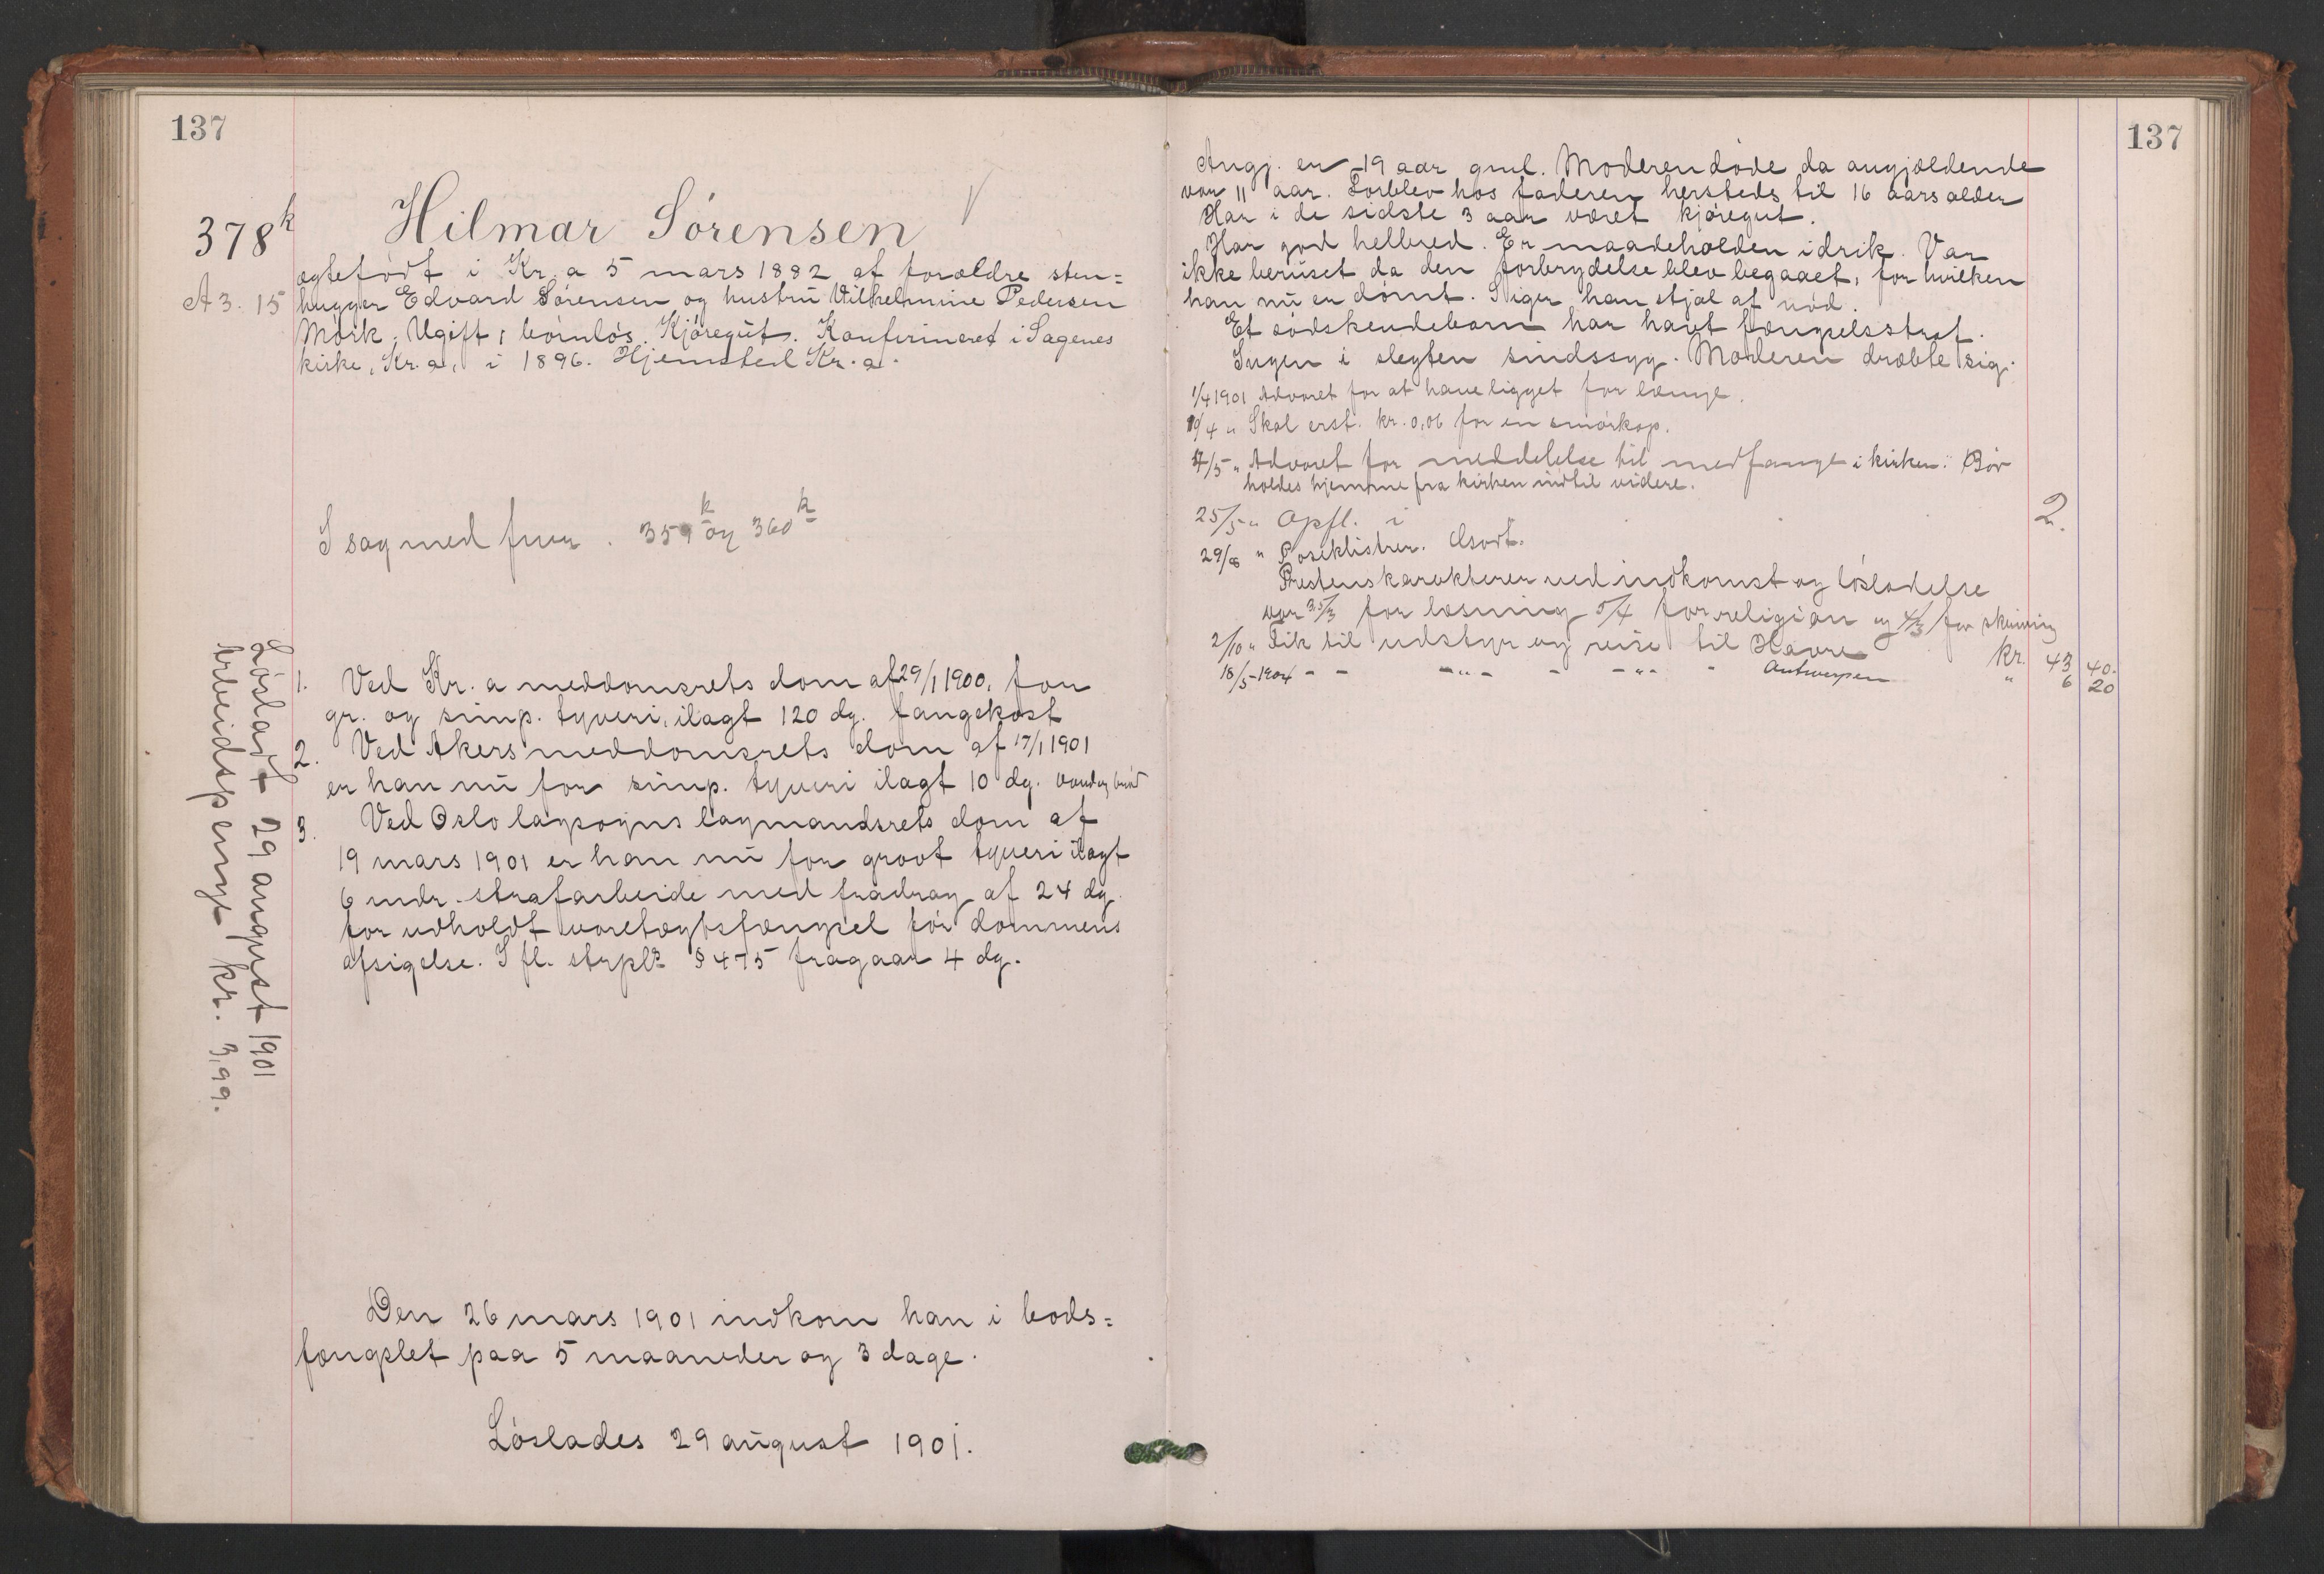 137
378k
Hilmar Sørensen
ægtefødt i Kr.a 5 mars 1882 af forældre sten=
A 3. 15
hugger Edvard Sørensen og hustru Vilhelmine Pedersen
Mørk. Ugift, børnløs. Kjøregut. Konfirmeret i Sagenes
kirke, Kr.a, i 1896. Hjemsted Kr.a.
I sag med 359k og 360k
1. Ved Kr.a meddomsrets dom af 29/1 1900, for
gr. og simp. tyveri, ilagt 120 dg. fangekost
2. Ved Akers meddomsrets dom af 17/1 1901
er han nu for simp. tyveri ilagt 10 dg. vand og brød
3. Ved Oslo lagsogns lagmandsrets dom af
19 mars 1901 er han nu for grovt tyveri ilagt
6 mdr. strafarbeide med fradrag af 24 dg.
for udholdt varetægtsfængsel før dommens
afsigelse. Ifl. strpl. § 475 fragaar 4 dg.
Løsladt 29 august 1901
arbeidspenge kr. 3,99.
Den 26 mars 1901 indkom han i bods=
fængslet paa 5 maaneder og 3 dage.
Løslades 29 august 1901.
137
Angj. er 19 aar gml. Moderen døde da angjældende
var 11 aar. Forblev hos faderen hersteds til 16 aars alder
Har i de sidste 3 aar været kjøregut.
Har god helbred. Er maadeholden i drik. Var
ikke beruset da den forbrydelse blev begaaet, for hvilken
han nu er dømt. Siger han stjal af nød.
Et sødskendebarn har havt fængselsstraf.
Ingen i slegten sindssyg. Moderen dræbte sig.
1/4 1901 Advaret for at have ligget for længe.
19/4 " Skal erst. kr. 0,06 for en smørkop.
17/5 " Advaret for meddelelse til medfange i kirken. Bør
holdes hjemme fra kirken indtil videre.
25/5 " Opfl. i 2.
29/8 " Poseklistrer.
Prestens karakterer ved indkomst og løsladelse
var 3,5/3 for læsning 5/4 for religion og 4/3 for skrivning
2/10 " Fik til udstyr og reise til Havre kr. 43 40.
18/5-1904 - - -"- - -"- " Antwerpen " 6 20